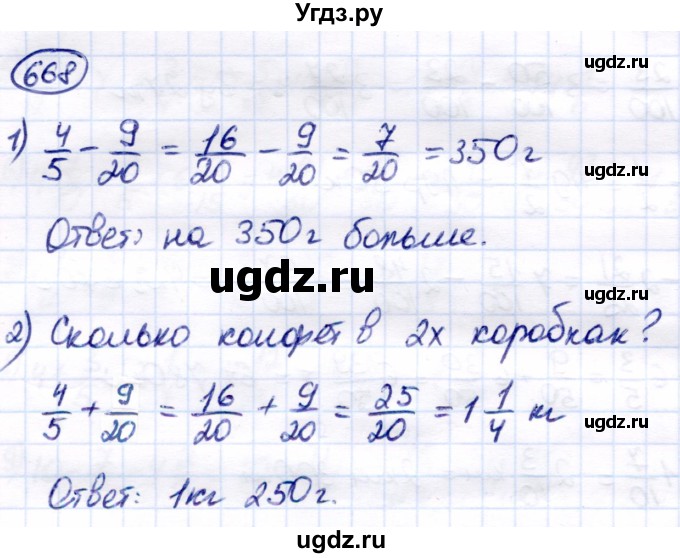 Угдз.ру
ugdz.ru
668
1) 4/5 - 9/20 = 16/20 - 9/20 = 7/20 = 350 г
ugdz.ru
Ответ: на 350 г больше.
ugdz.ru
ugdz.ru
2) Сколько конфет в 2х коробках?
4/5 + 9/20 = 16/20 + 9/20 = 25/20 = 1 1/4 кг
ugdz.ru
Ответ: 1 кг 250 г.
ugdz.ru
ugdz.ru